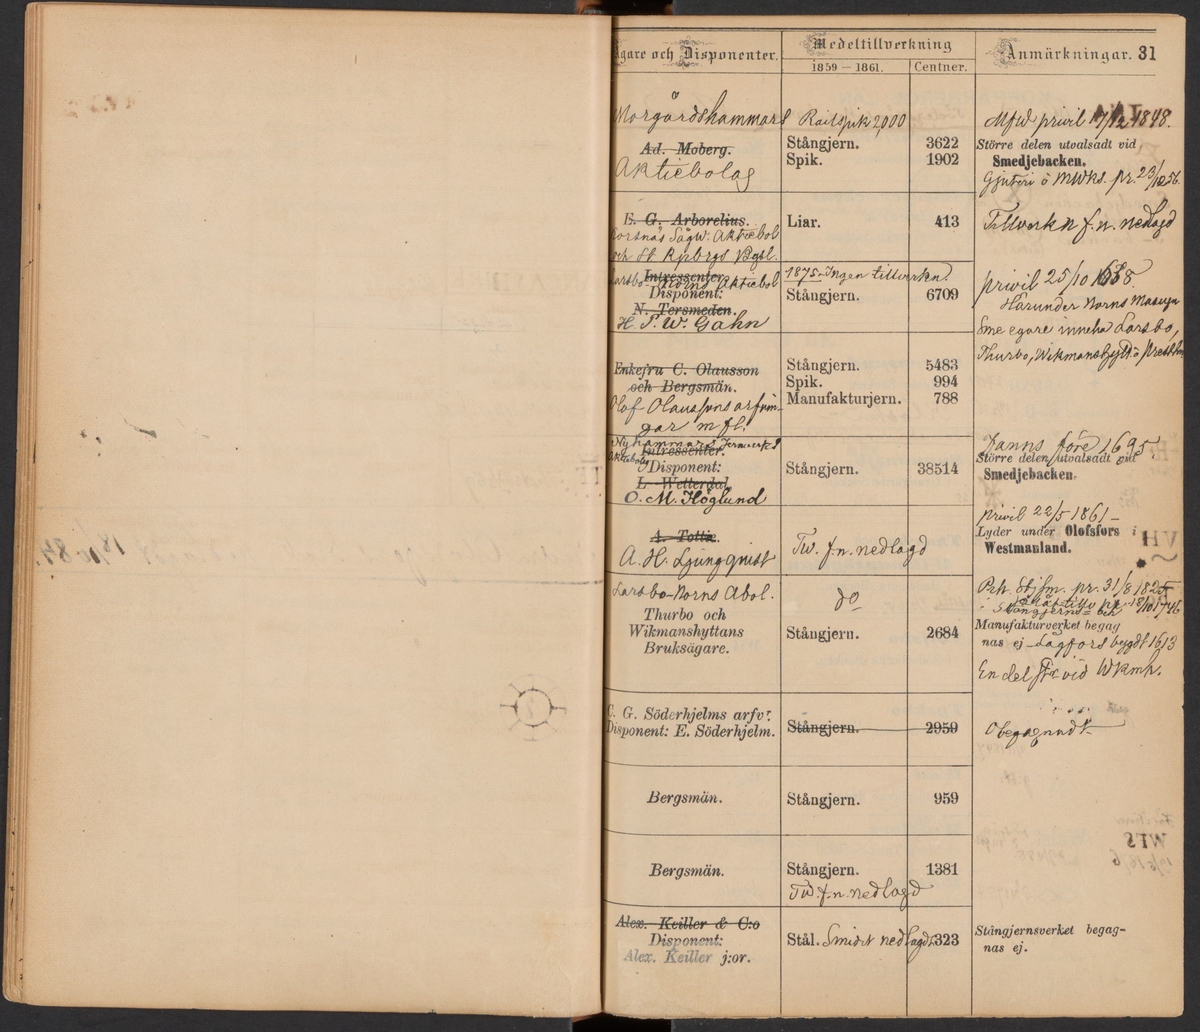 Ägare och Disponenter.
Medeltillverkning
1859 — 1861.
Centner.
Anmärkningar. 31
Morgårdshammars
Railspik 2,000
Mfw privil 17/12 1848.
Ad. Moberg.
Stångjern. 3622
Större delen utvalsadt vid
Spik. 1902
Smedjebacken.
Aktiebolag
Gjuteri o MWks. pr. 23/10 56.
E. G. Arborelius.
Liar. 413
Tillverkn f.n. nedlagd
Korsnäs Sågw. Aktiebol
och St. Kpbrgs Bgsl.
Intressenter
1875 Ingen tillverkn.
privil 25/10 1638
Larsbo-Norns Aktiebol
Disponent:
Stångjern. 6709
Härunder Norns Masugn
N. Tersmeden.
H. T. W. Gahn
Sme egare inneha Larsbo,
Thurbo, Wikmanshytt o
Enkefru C. Olausson
Stångjern. 5483
och Bergsmän.
Spik. 994
Olof Olaussons arfvin-
Manufakturjern. 788
gar m fl.
Nyhammars Jernverks
Aktiebolag
Intressenter.
Fanns före 1695
Större delen utvalsadt vid
Disponent:
Stångjern. 38514
Smedjebacken.
L. Wetterdal
O. M. Höglund
privil 22/5 1861 —
A. Tottie
Lyder under Olofsfors i
Westmanland.
A. H. Ljungqvist
Tw. f.n. nedlagd
Larsbo-Norns Abol.
do
pr. 31/8 1825
Thurbo och
Manufakturverket begag
Wikmanshyttans
Stångjern. 2684
nas ej Lågfors bygdt 1613
Bruksägare.
En del vid Wkmh.
C. G. Söderhjelms arfvr.
Disponent: E. Söderhjelm.
Stångjern. 2959
Obegagnadt
Bergsmän.
Stångjern. 959
Bergsmän.
Stångjern. 1381
Tw. f.n. nedlagd
Alex. Keiller & C:o
Disponent:
Stål. Smidet nedlagdt 323
Stångjernsverket begag-
nas ej.
Alex. Keiller j:or.